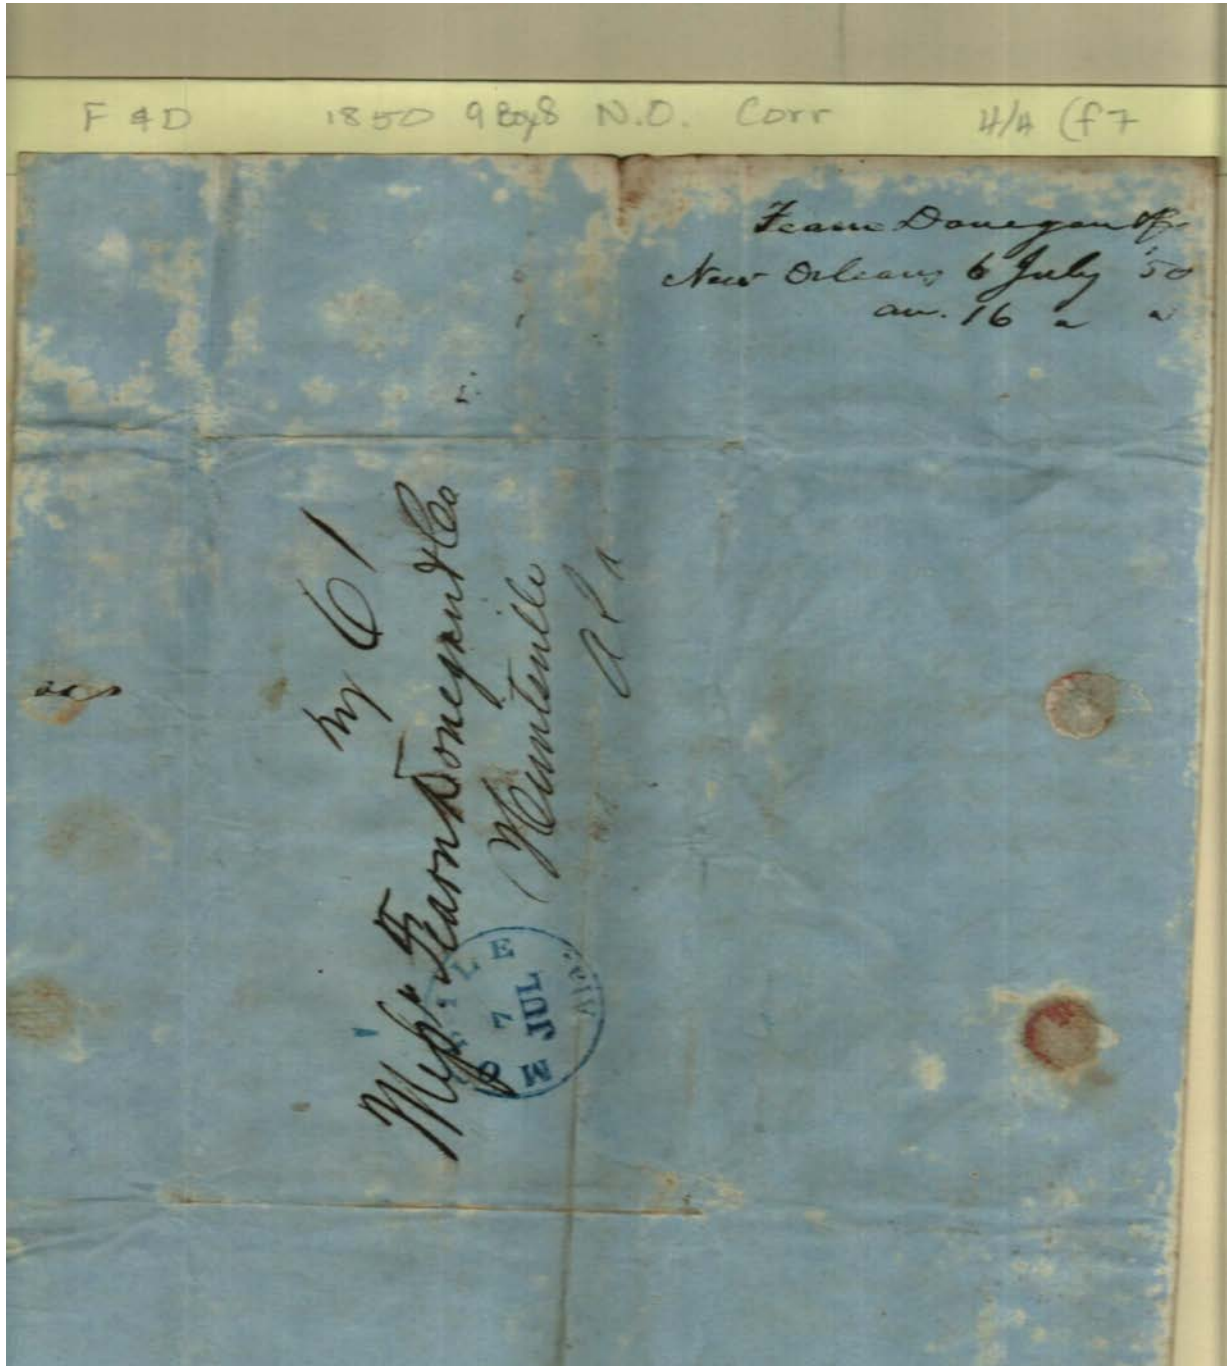 F & D 1850 9 Boy8 N.O. Corr H/A (f 7
Fearn Donegan & Co
New Orleans 6 July '50
an. 16 " "
No 61
Mess Fearn Donegan & Co
Huntsville
Ala
MOBILE
7
JUL
Ala.